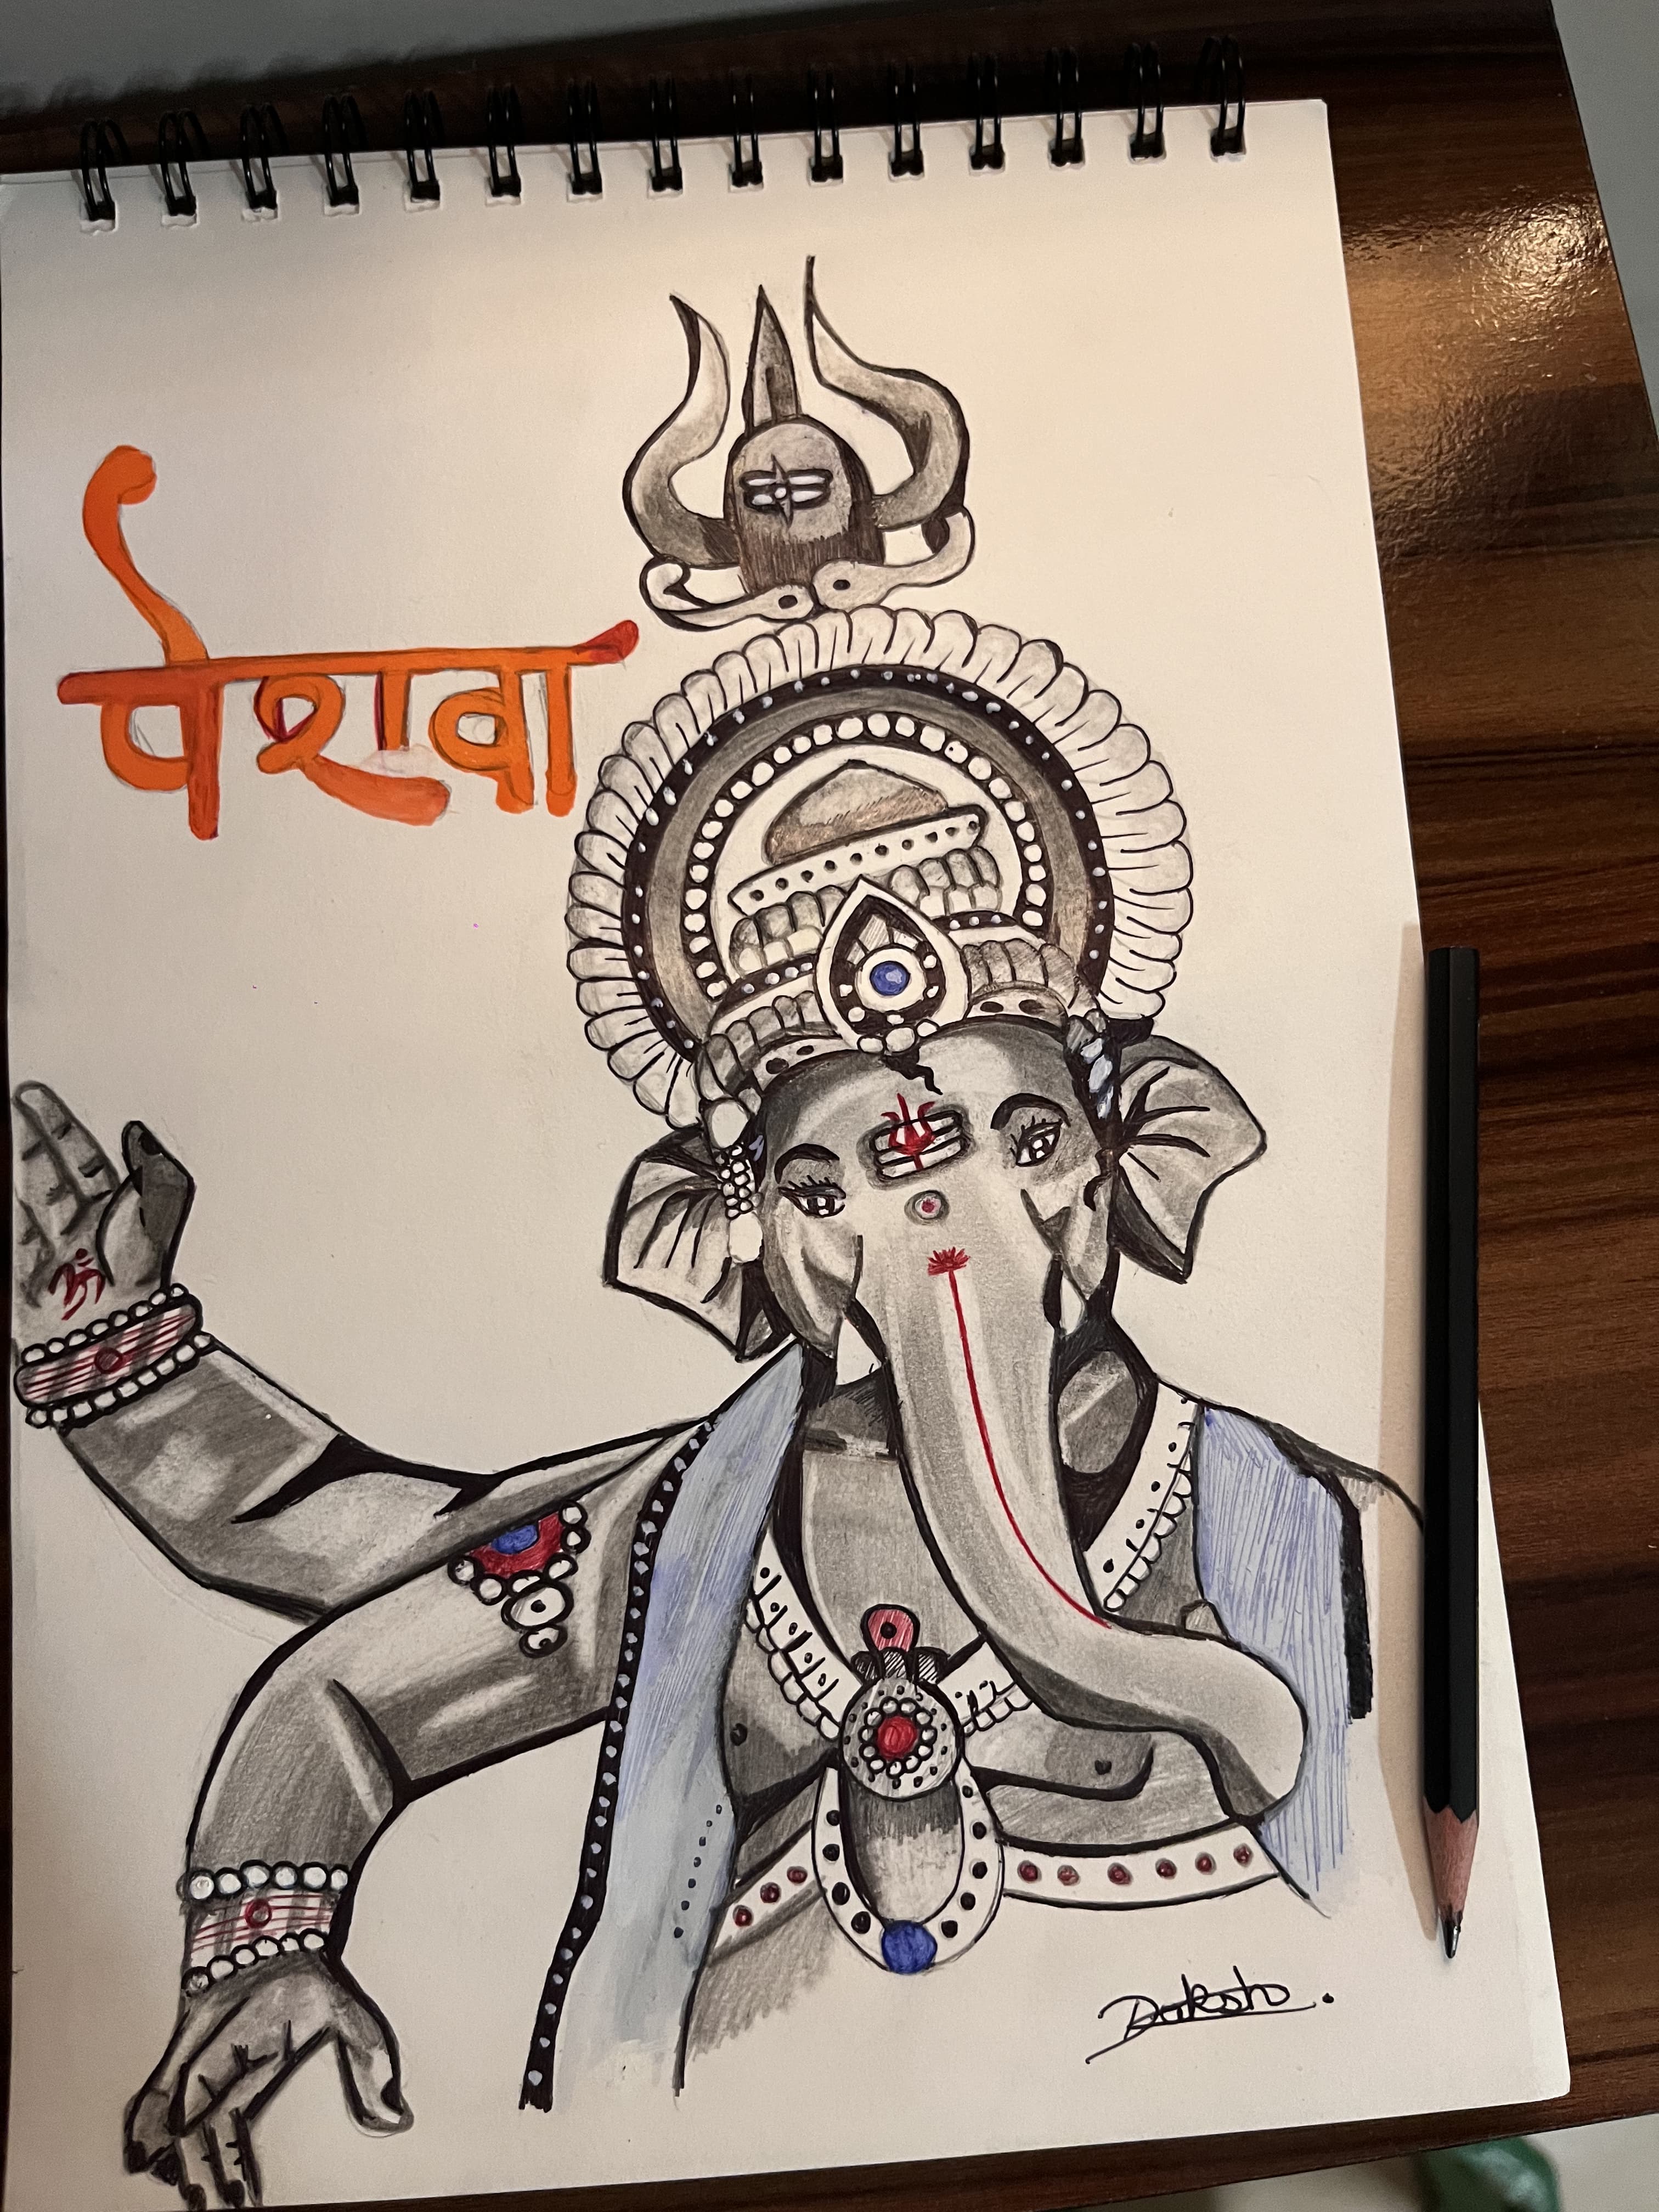 पेशवा
ॐ
Daksh.